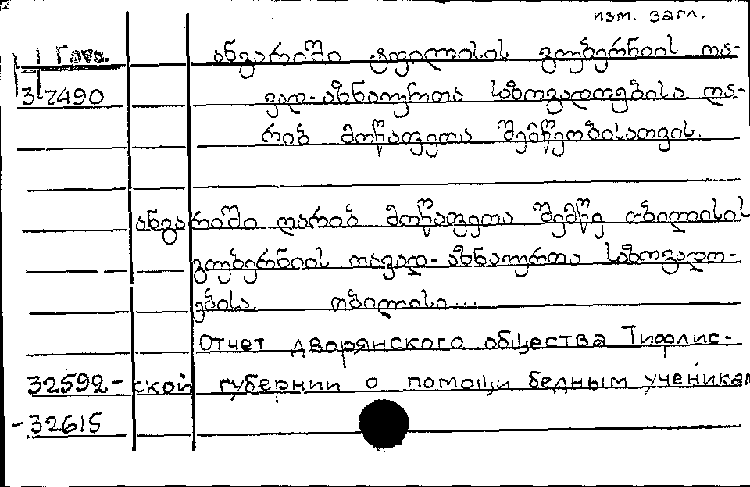 изм. загл.
Глав. ანგარიში ტფილისის გუბერნიის თა-
37490 ვად-აზნაურთა საზოგადოებისა ღა-
რიბ მოწაფეთა შემწეობისათვის.
ანგარიში ღარიბ მოწაფეთა შემწე თბილისის
გუბერნიის თავად-აზნაურთა საზოგადო-
ებისა. თბილისი...
Отчет дворянского общества Тифлис-
32592- ской губернии о помощи бедным ученикам
-32615